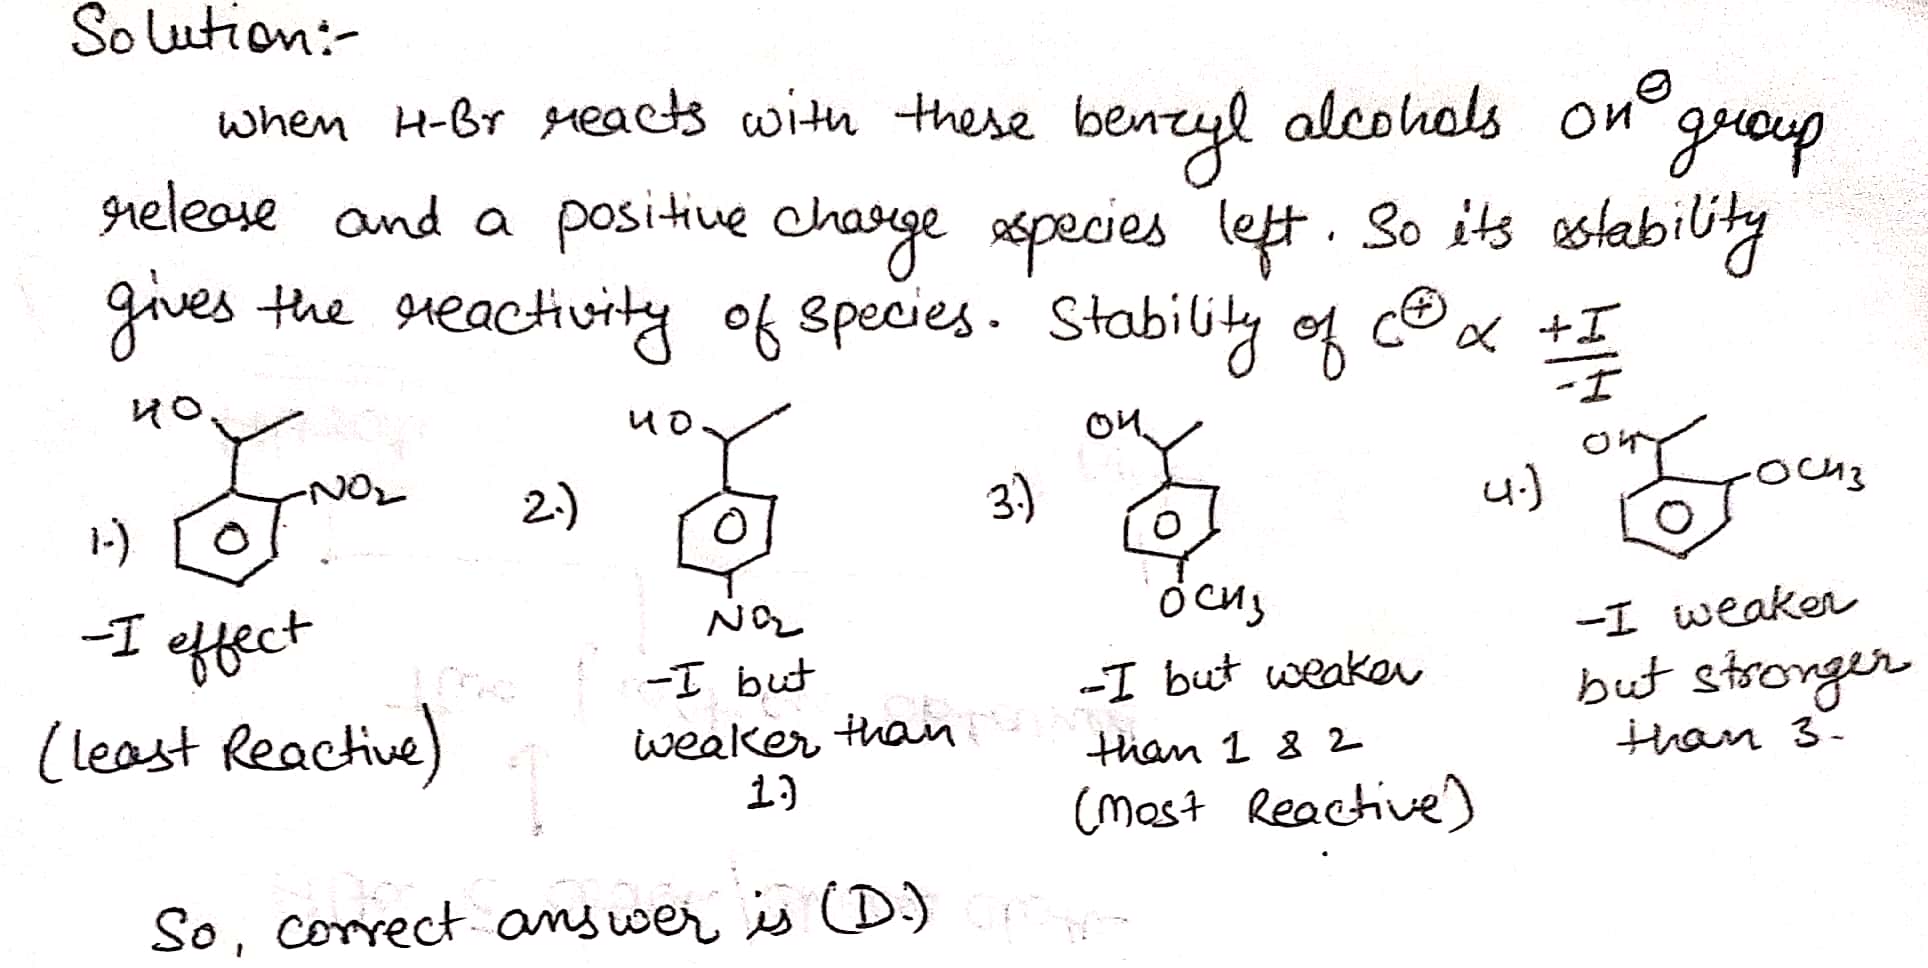 Solution:-
when H-Br reacts with these benzyl alcohals OH⊖ group
release and a positive charge species left. So its stability
gives the reactivity of species. Stability of C⊕ ∝ +I
-I
HO HO OH OH
NO2 OCH3
1.) 2.) 3.) 4.)
NO2 OCH3
-I effect -I but -I but weaker -I weaker
(least Reactive) weaker than than 1 & 2 but stronger
1.) (Most Reactive) than 3.
So, correct answer is (D.)